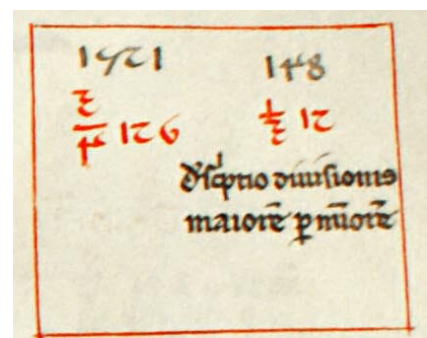 1521 148
3/4 126 1/3 12
d'sc'ptio diuisionis
maiorē ꝑ mīorē